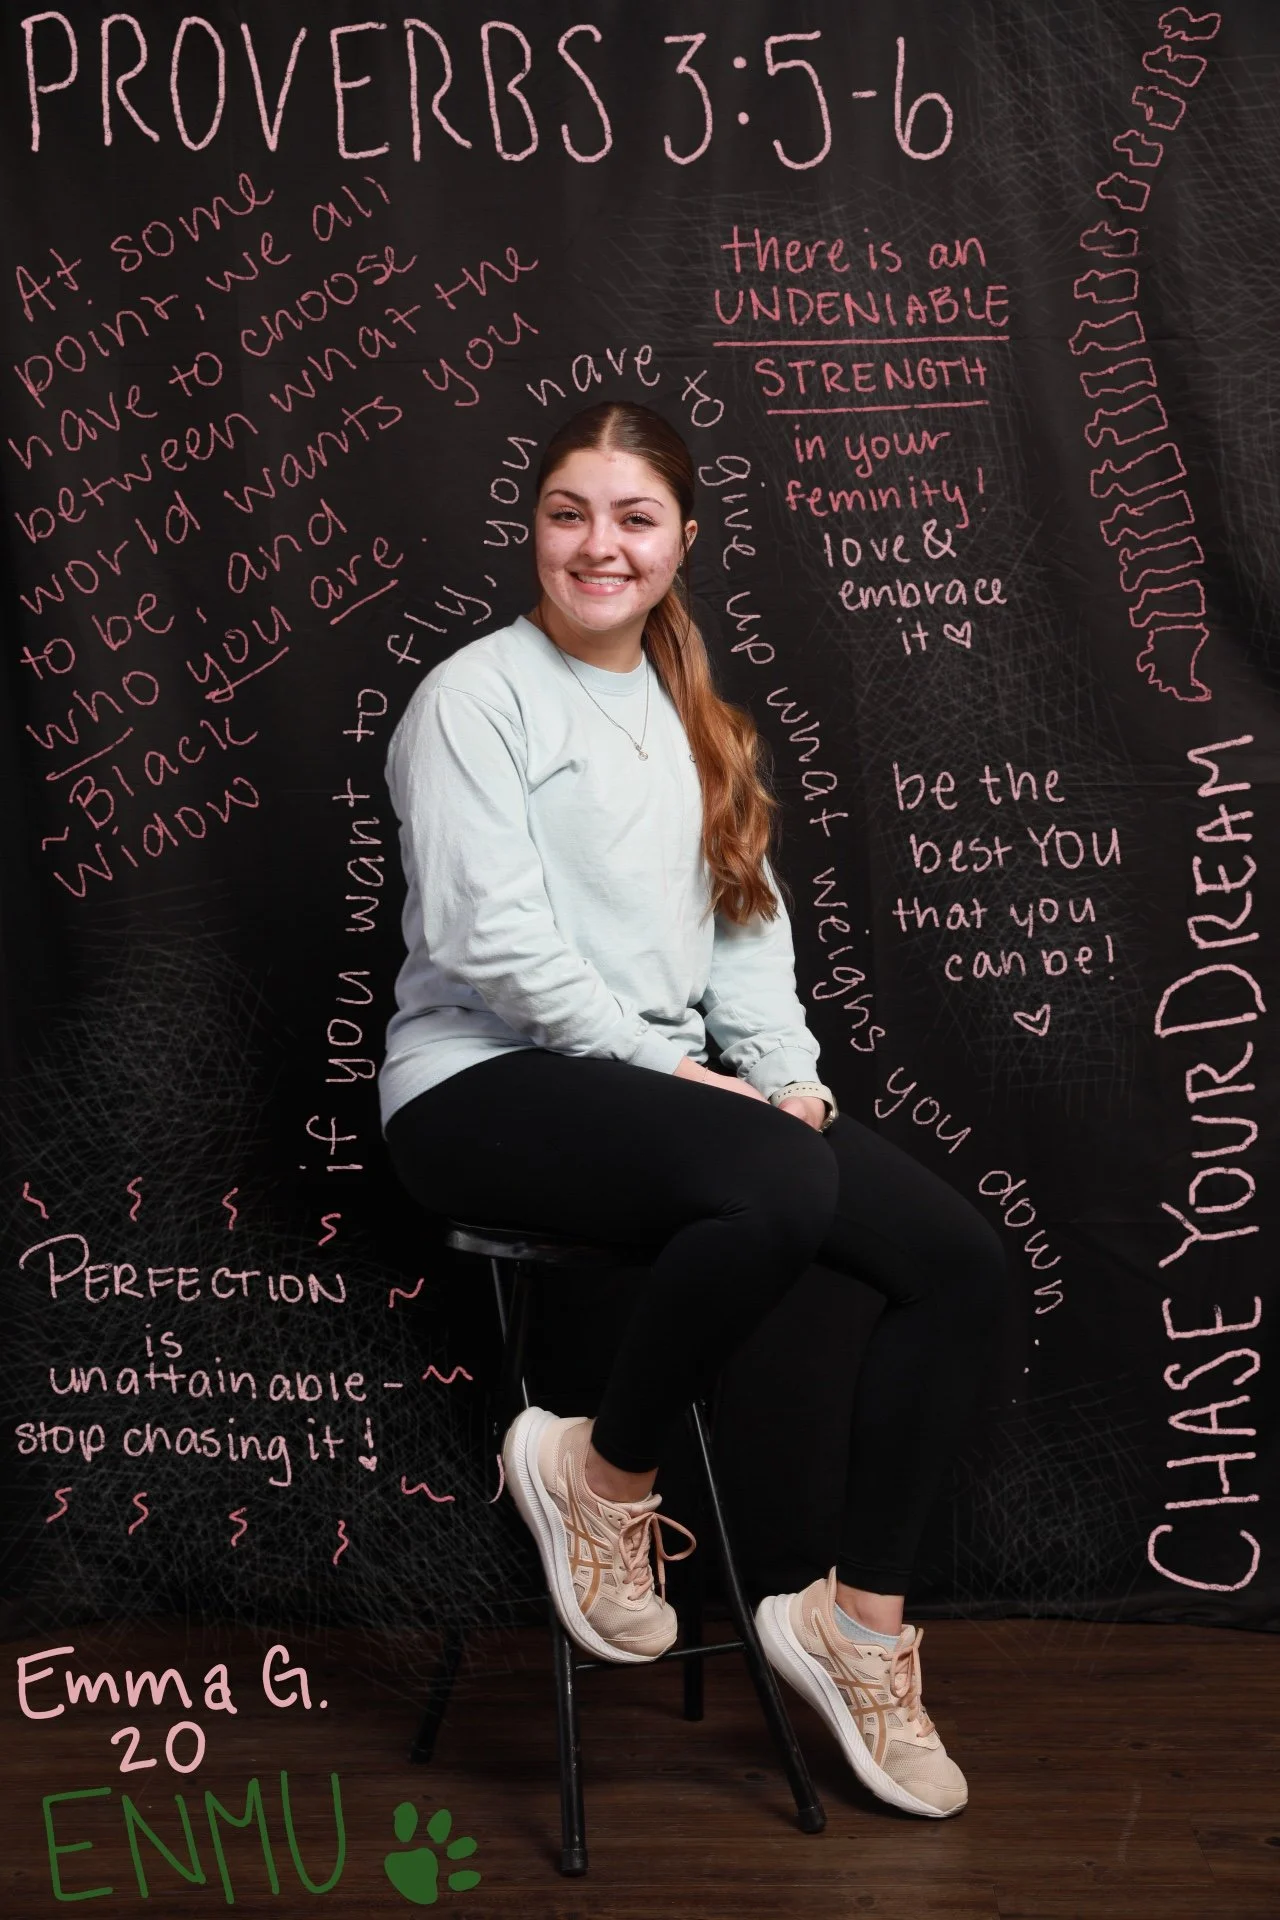 PROVERBS 3:5-6
At some
point, we all
have to choose
between what the
world wants you
to be, and
who you are.
~Black
Widow
if you want to fly, you have to give up what weighs you down...
there is an
UNDENIABLE
STRENGTH
in your
feminity!
love &
embrace
it
be the
best YOU
that you
can be!
CHASE YOUR DREAM
PERFECTION
is
unattainable -
stop chasing it!
Emma G.
20
ENMU